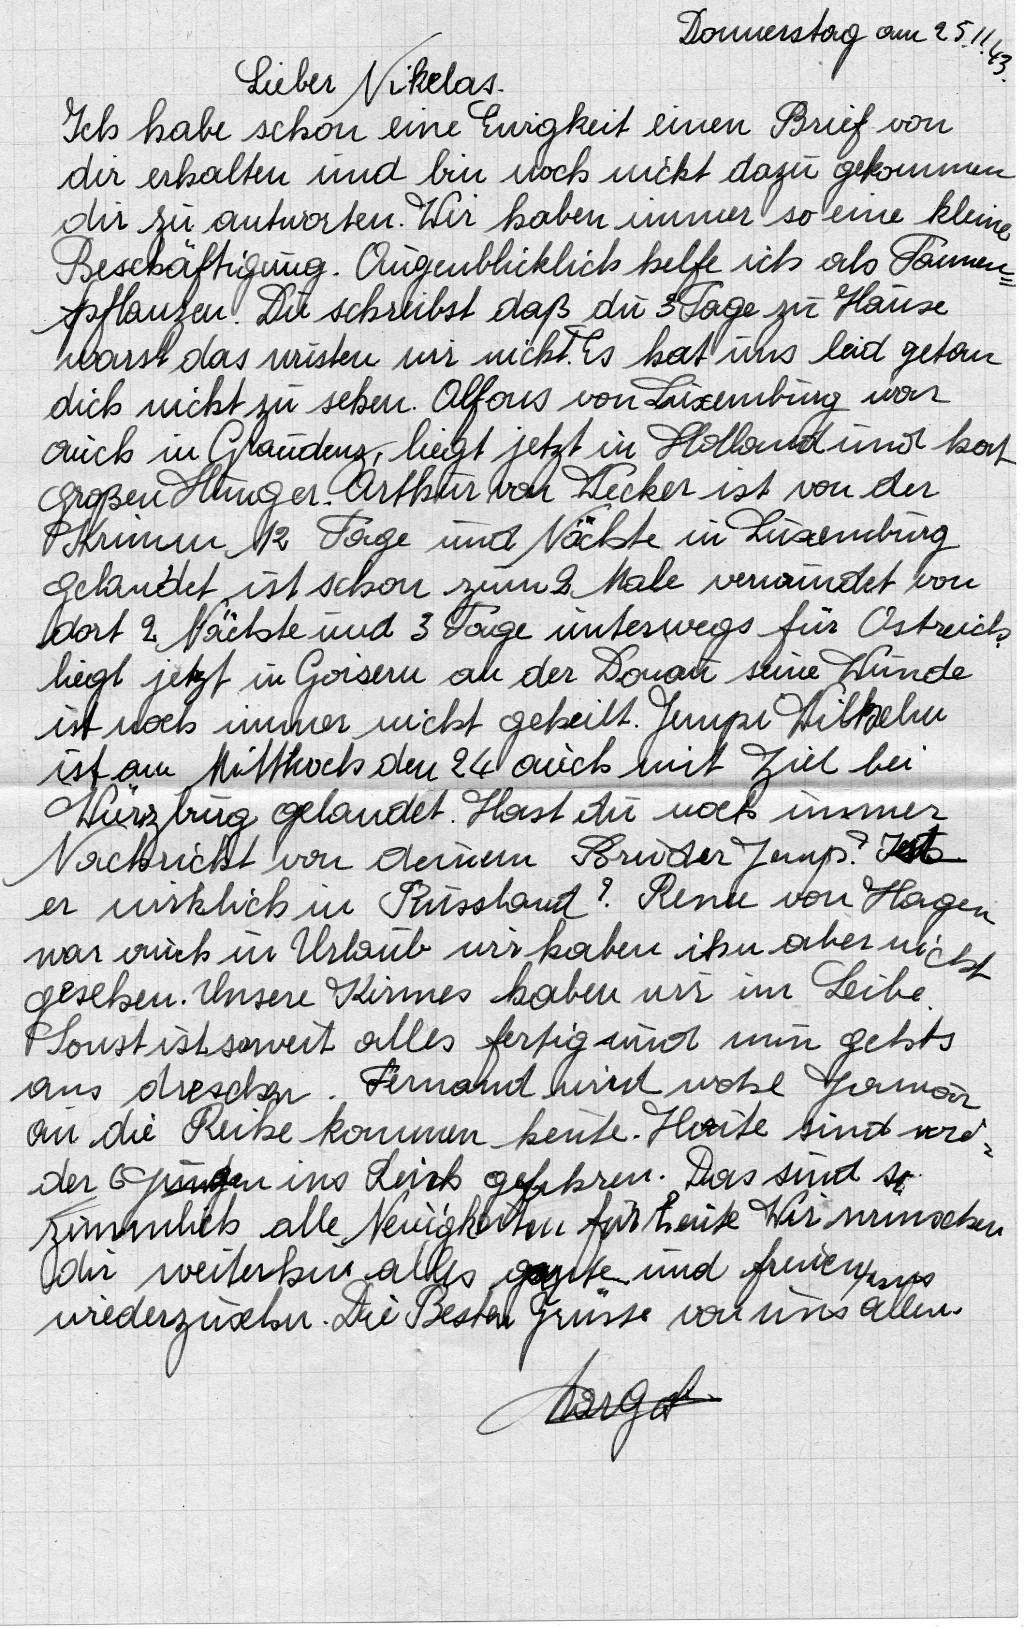 Donnerstag am 25.11.43.
Lieber Nikolas.
Ich habe schon eine Ewigkeit einen Brief von
dir erhalten und bin noch nicht dazu gekommen
dir zu antworten. Wir haben immer so eine kleine
Beschäftigung. Augenblicklich helfe ich als Tannen=
pflanzen. Du schreibst daß du 3 Tage zu Hause
warst das wusten wir nicht. Es hat uns leid getan
dich nicht zu sehen. Alfons von Luxemburg war
auch in Graudenz, liegt jetzt in Holland und hat
großen Hunger. Arthur von Wecker ist von der
Krimm 12 Tage und Nächte in Luxemburg
gelandet ist schon zum 2 Male verwundet von
dort 2 Nächte und 3 Tage unterwegs für Ostreich.
liegt jetzt in Goisern an der Donau seine Wunde
ist noch immer nicht geheilt. Jempi Wilhelm
ist am Mitthoch den 24 auch mit Ziel bei
Würzburg gelandet. Hast du noch immer
Nachricht von deinem Bruder Jemp? Ist
er wirklich in Russland? Rene von Hagen
war auch in Urlaub wir haben ihn aber nicht
gesehen. Unsere Kirmes haben wir im Leibe.
Sonst ist soweit alles fertig und nun gehts
ans dreschen. Fernand wird wohl Januar
an die Reihe kommen heute. Heute sind wie=
der 6 Jungen ins Reich gefahren. Das sind so
zimmlich alle Neuigkeiten für heute Wir wunschen
dir weiterhin alles gute und freuen uns
wiederzusehn. Die Besten Grüsse von uns allen.
Margot